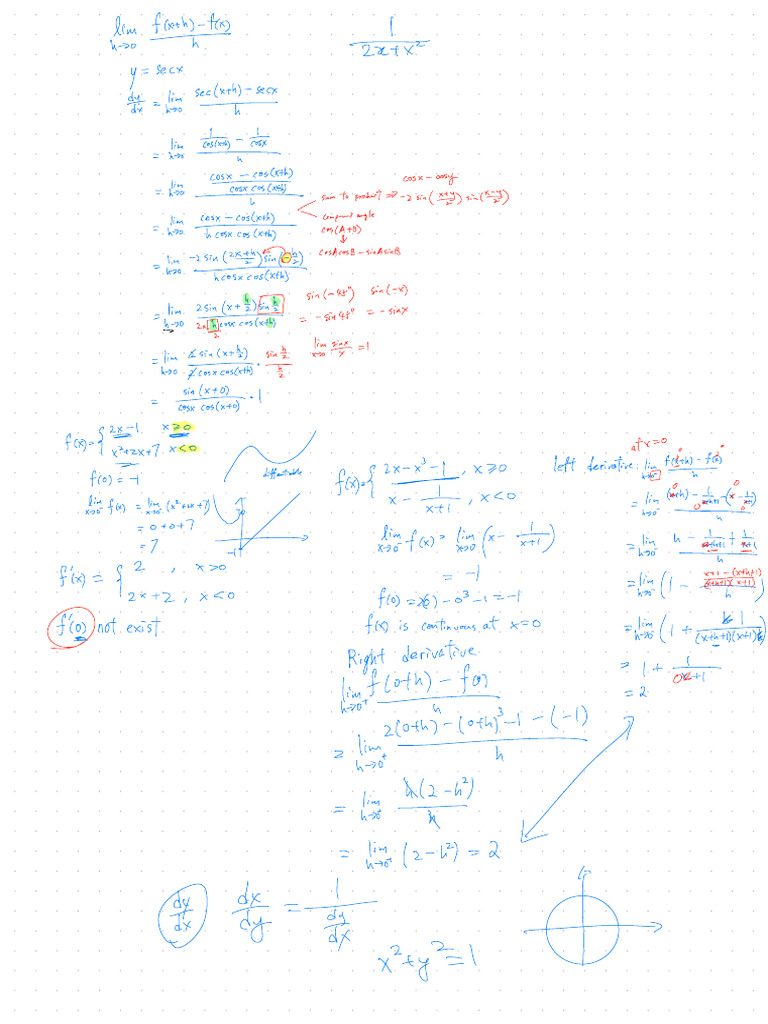 lim h→0 (f(x+h) − f(x))/h
1/(2x+x²)
y = secx
dy/dx = lim h→0 (sec(x+h) − secx)/h
= lim h→0 (1/cos(x+h) − 1/cosx)/h
= lim h→0 ((cosx − cos(x+h))/(cosx cos(x+h)))/h
= lim h→0 (cosx − cos(x+h))/(h cosx cos(x+h))
cosx − cosy
sum to product ⇒ −2 sin((x+y)/2) sin((x−y)/2)
compound angle
cos(A+B)
↓
cosAcosB − sinAsinB
= lim h→0 (−2 sin((2x+h)/2) sin(−h/2))/(h cosx cos(x+h))
= lim h→0 (2 sin(x + h/2) sin h/2)/(2x h/2 cosx cos(x+h))
sin(−48°) sin(−x)
= −sin48° = −sinx
= lim h→0 (2 sin(x+h/2))/(2 cosx cos(x+h)) · (sin h/2)/(h/2)
lim x→0 sinx/x = 1
= sin(x+0)/(cosx cos(x+0)) · 1
f(x) = { 2x−1, x ≥ 0
x²+2x+7, x < 0
f(0) = −1
lim x→0⁻ f(x) = lim x→0⁻ (x²+2x+7)
= 0+0+7
= 7
differentiable
7
−1
f'(x) = { 2, x > 0
2x+2, x < 0
f'(0) not exist.
f(x) = { 2x − x³ − 1, x ≥ 0
x − 1/(x+1), x < 0
lim x→0⁻ f(x) = lim x→0 (x − 1/(x+1))
= −1
f(0) = 2(0) − 0³ − 1 = −1
f(x) is continuous at x = 0
Right derivative
lim h→0⁺ (f(0+h) − f(0))/h
= lim h→0⁺ (2(0+h) − (0+h)³ − 1 − (−1))/h
= lim h→0⁺ h(2−h²)/h
= lim h→0⁺ (2−h²) = 2
at x = 0
left derivative: lim h→0⁻ (f(x+h) − f(x))/h
= lim h→0⁻ ((x+h) − 1/(x+h+1) − (x − 1/(x+1)))/h
= lim h→0⁻ (h − 1/(x+h+1) + 1/(x+1))/h
= lim h→0⁻ (1 − ((x+1−(x+h+1))/((x+h+1)(x+1)))/h)
= lim h→0⁻ (1 + h 1/((x+h+1)(x+1)h))
= 1 + 1/(0+1)
= 2
dy/dx
dx/dy = 1/(dy/dx)
x² + y² = 1